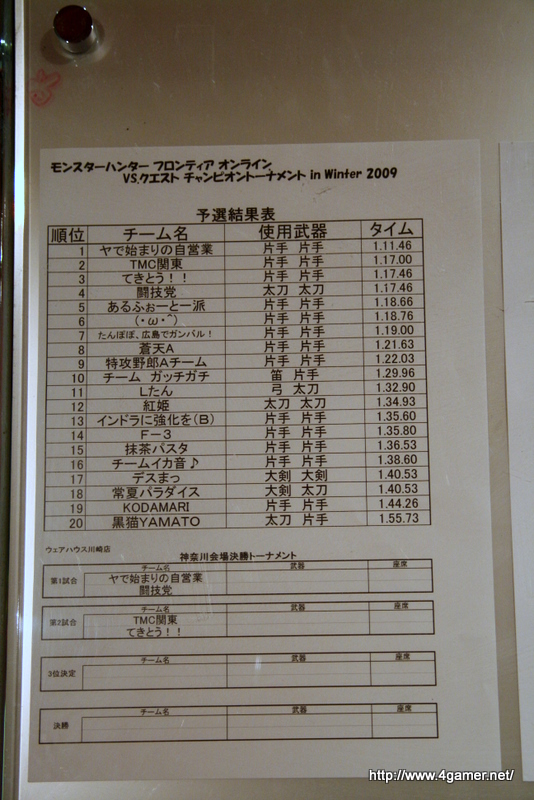 モンスターハンター フロンティア オンライン
VS.クエスト チャンピオントーナメント in Winter 2009
予選結果表
順位 チーム名 使用武器 タイム
1 ヤで始まりの自営業 片手 片手 1.11.46
2 TMC関東 片手 片手 1.17.00
3 てきとう！！ 片手 片手 1.17.46
4 闘技党 太刀 太刀 1.17.46
5 あるふぉーとー派 片手 片手 1.18.66
6 (・ω・^) 片手 片手 1.18.76
7 たんぽぽ、広島でガンバル！ 片手 片手 1.19.00
8 蒼天A 片手 片手 1.21.63
9 特攻野郎Aチーム 片手 片手 1.22.03
10 チーム ガッチガチ 笛 片手 1.29.96
11 Lたん 弓 太刀 1.32.90
12 紅姫 太刀 太刀 1.34.93
13 インドラに強化を(B) 片手 片手 1.35.60
14 F－3 片手 片手 1.35.80
15 抹茶パスタ 片手 片手 1.36.53
16 チームイカ音♪ 片手 片手 1.38.60
17 デスまっ 大剣 大剣 1.40.53
18 常夏パラダイス 大剣 太刀 1.40.53
19 KODAMARI 片手 片手 1.44.26
20 黒猫YAMATO 太刀 片手 1.55.73
ウェアハウス川崎店
神奈川会場決勝トーナメント
チーム名 武器 座席
第1試合 ヤで始まりの自営業
闘技党
チーム名 武器 座席
第2試合 TMC関東
てきとう！！
チーム名 武器 座席
3位決定
チーム名 武器 座席
決勝
http://www.4gamer.net/